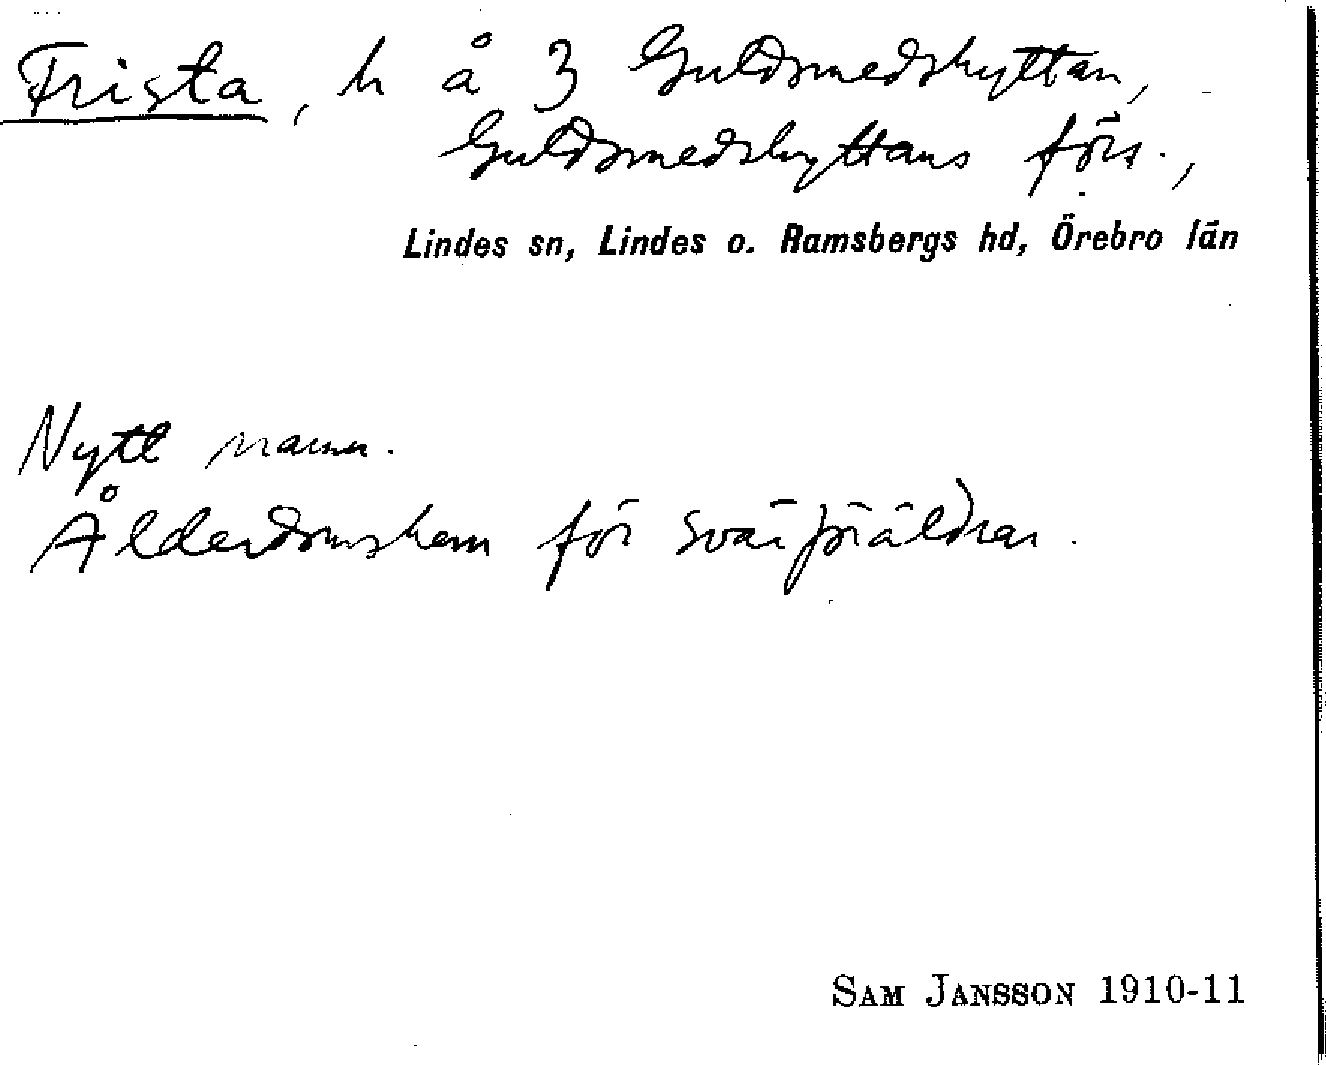 Frista, h å 3 Guldsmedshyttan,
Guldsmedshyttans förs.,
Lindes sn, Lindes o. Ramsbergs hd, Örebro län
Nytt namn.
Ålderdomshem för svärföräldrar.
SAM JANSSON 1910-11